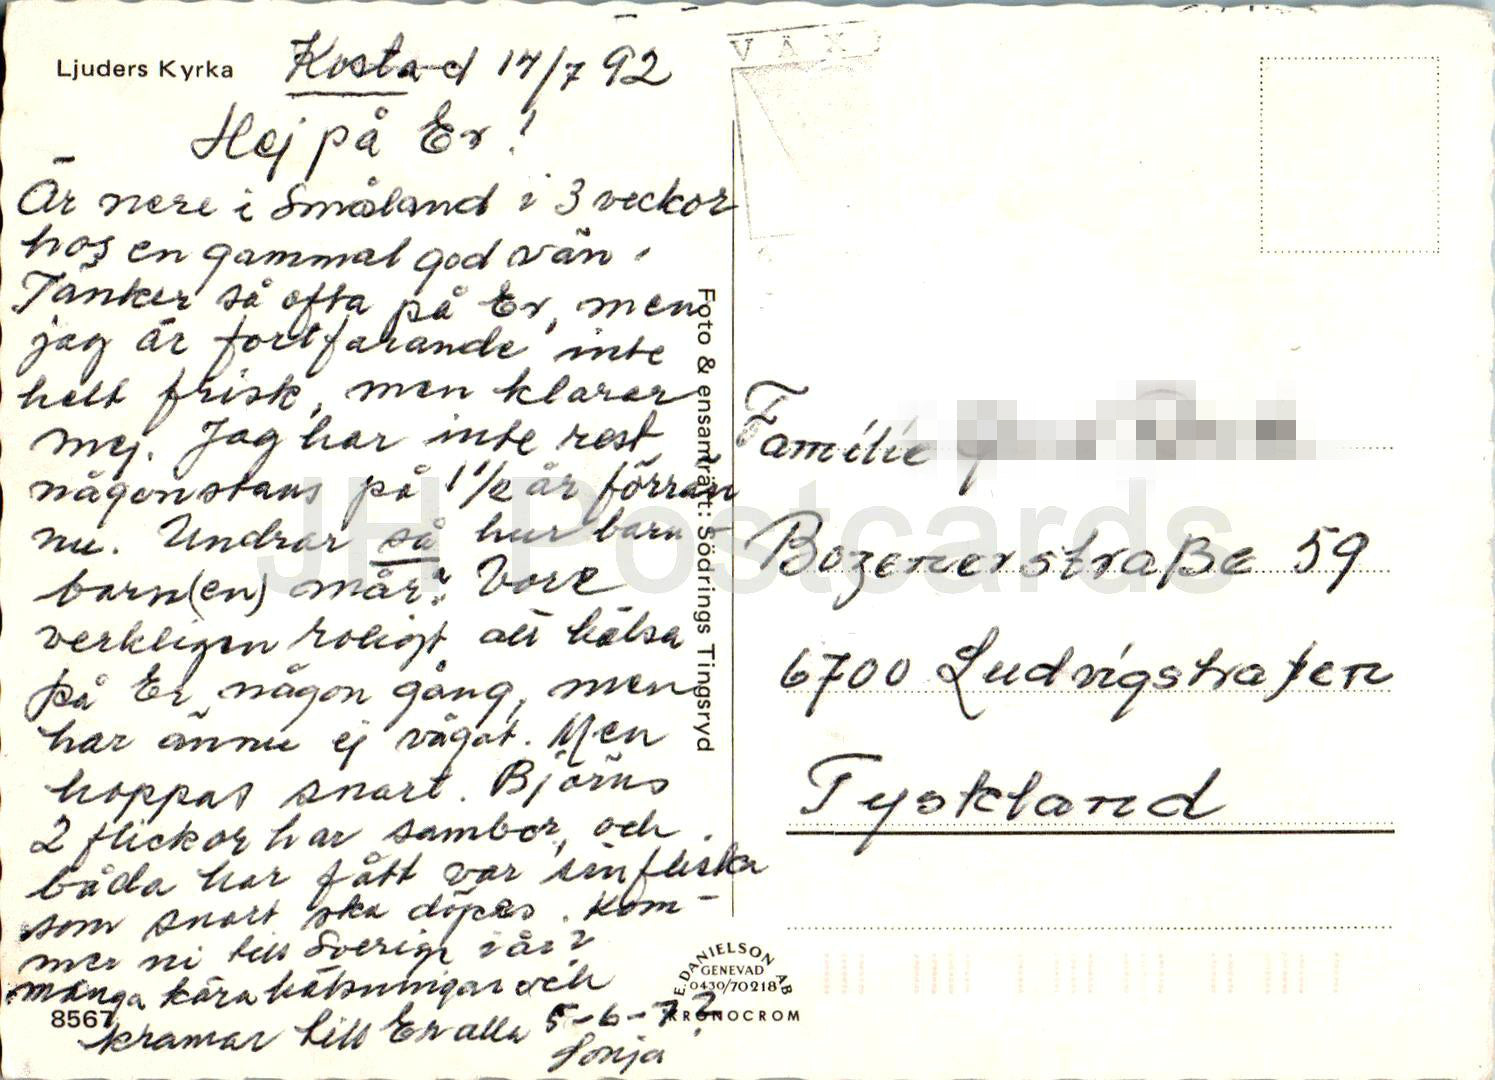 Ljuders Kyrka
Kosta d 17/7 92
Hej på Er!
Är nere i Småland i 3 veckor
hos en gammal god vän.
Tänker så ofta på Er, men
jag är fortfarande inte
helt frisk, men klarar
mej. Jag har inte rest
någonstans på 1 1/2 år förrän
nu. Undrar så hur barn-
barn(en) mår? Vore
verkligen roligt att hälsa
på Er någon gång, men
har ännu ej vågat. Men
hoppas snart. Björns
2 flickor har sambor, och
båda har fått var sin flicka
som snart ska döpas. Kom-
mer ni till Sverige i år?
många kära hälsningar och
kramar till Er alla 5-6-7?
Sonja
8567
Foto & ensamrätt: Södrings Tingsryd
E. DANIELSON AB
GENEVAD
0430/70218
KRONOCROM
VÄX
Familie
Bozenerstraße 59
6700 Ludvigstrafen
Tyskland
JH Postcards